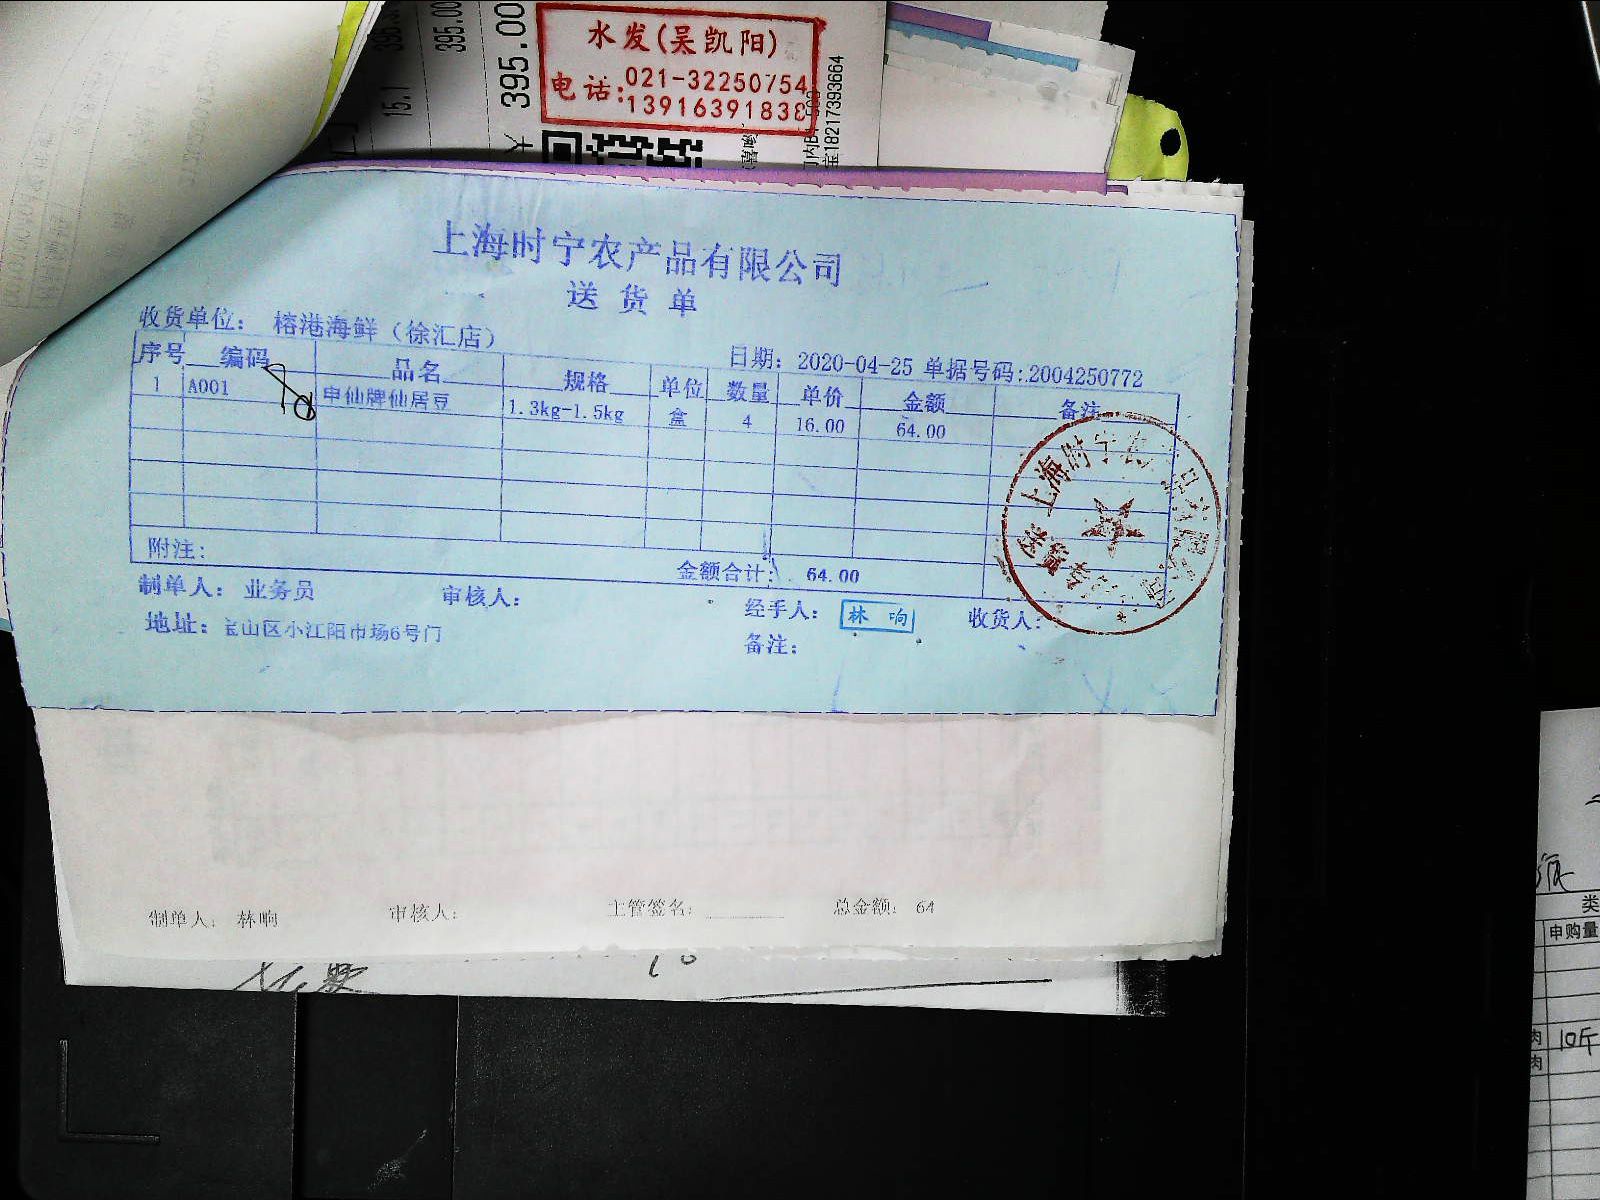 395.00
395.00
15.1
¥ 395.00
水发(吴凯阳)
电话:021-32250754
13916391838
宝18217393664
上海时宁农产品有限公司
送货单
收货单位: 榕港海鲜（徐汇店）
日期: 2020-04-25 单据号码:2004250772
序号 编码 品名 规格 单位 数量 单价 金额 备注
1 A001 申仙牌仙居豆 1.3kg-1.5kg 盒 4 16.00 64.00
附注:
金额合计: 64.00
制单人: 业务员 审核人: 经手人: 林响 收货人:
地址: 宝山区小江阳市场6号门
备注:
上海时宁农产品有限公司
送货专
制单人: 林响 审核人: 主管签名: 总金额: 64
类
申购量
肉 10斤
肉